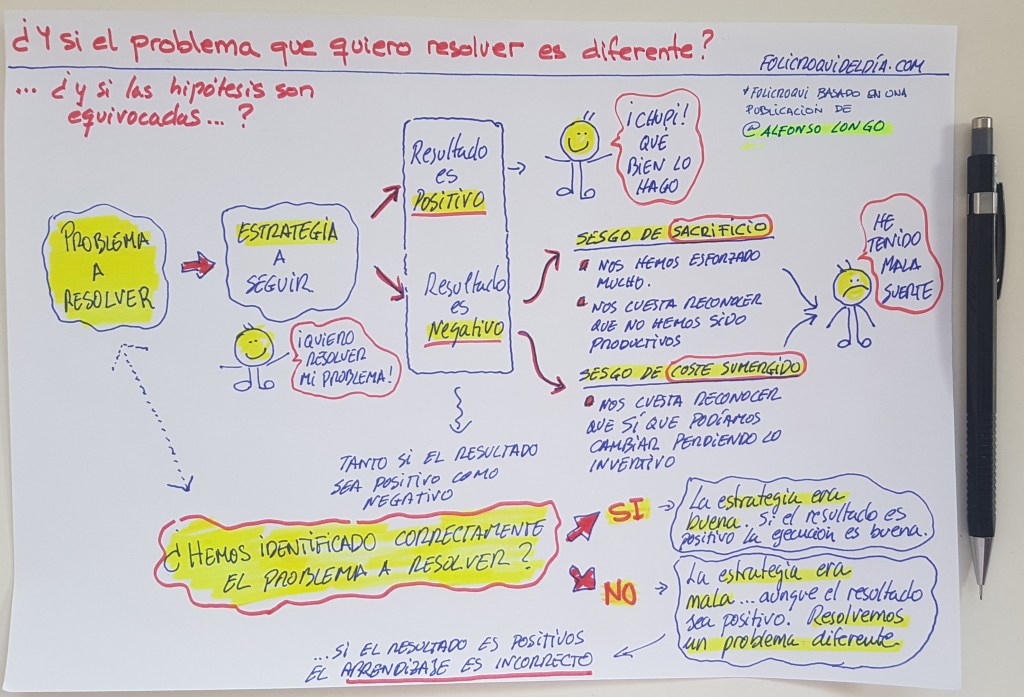 ¿Y si el problema que quiero resolver es diferente?
FOLICROQUIDELDÍA.COM
... ¿y si las hipótesis son
equivocadas...?
* FOLICROQUI BASADO EN UNA
PUBLICACIÓN DE
@ALFONSO LONGO
PROBLEMA
A
RESOLVER
ESTRATEGIA
A
SEGUIR
¡QUIERO
RESOLVER
MI PROBLEMA!
Resultado
es
POSITIVO
Resultado
es
Negativo
¡CHUPI!
QUÉ
BIEN LO
HAGO
SESGO DE SACRIFICIO
NOS HEMOS ESFORZADO
MUCHO.
NOS CUESTA RECONOCER
QUE NO HEMOS SIDO
PRODUCTIVOS
SESGO DE COSTE SUMERGIDO
NOS CUESTA RECONOCER
QUE SÍ QUE PODÍAMOS
CAMBIAR PERDIENDO LO
INVERTIVO
HE
TENIDO
MALA
SUERTE
TANTO SI EL RESULTADO
SEA POSITIVO COMO
NEGATIVO
¿HEMOS IDENTIFICADO CORRECTAMENTE
EL PROBLEMA A RESOLVER?
SI
La estrategia era
buena. Si el resultado es
positivo la ejecución es buena.
NO
La estrategia era
mala... aunque el resultado
sea positivo. Resolvemos
un problema diferente.
...SI EL RESULTADO ES POSITIVOS
EL APRENDIZAJE ES INCORRECTO